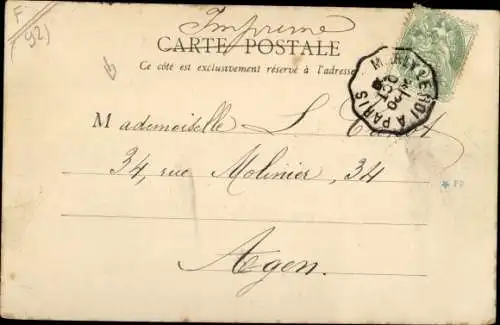 F
92)
Imprimé
CARTE POSTALE
Ce côté est exclusivement réservé à l'adresse
MARLY-LE-ROI A PARIS
OCT
Mademoiselle L.
34, rue Molinier, 34
Agen.